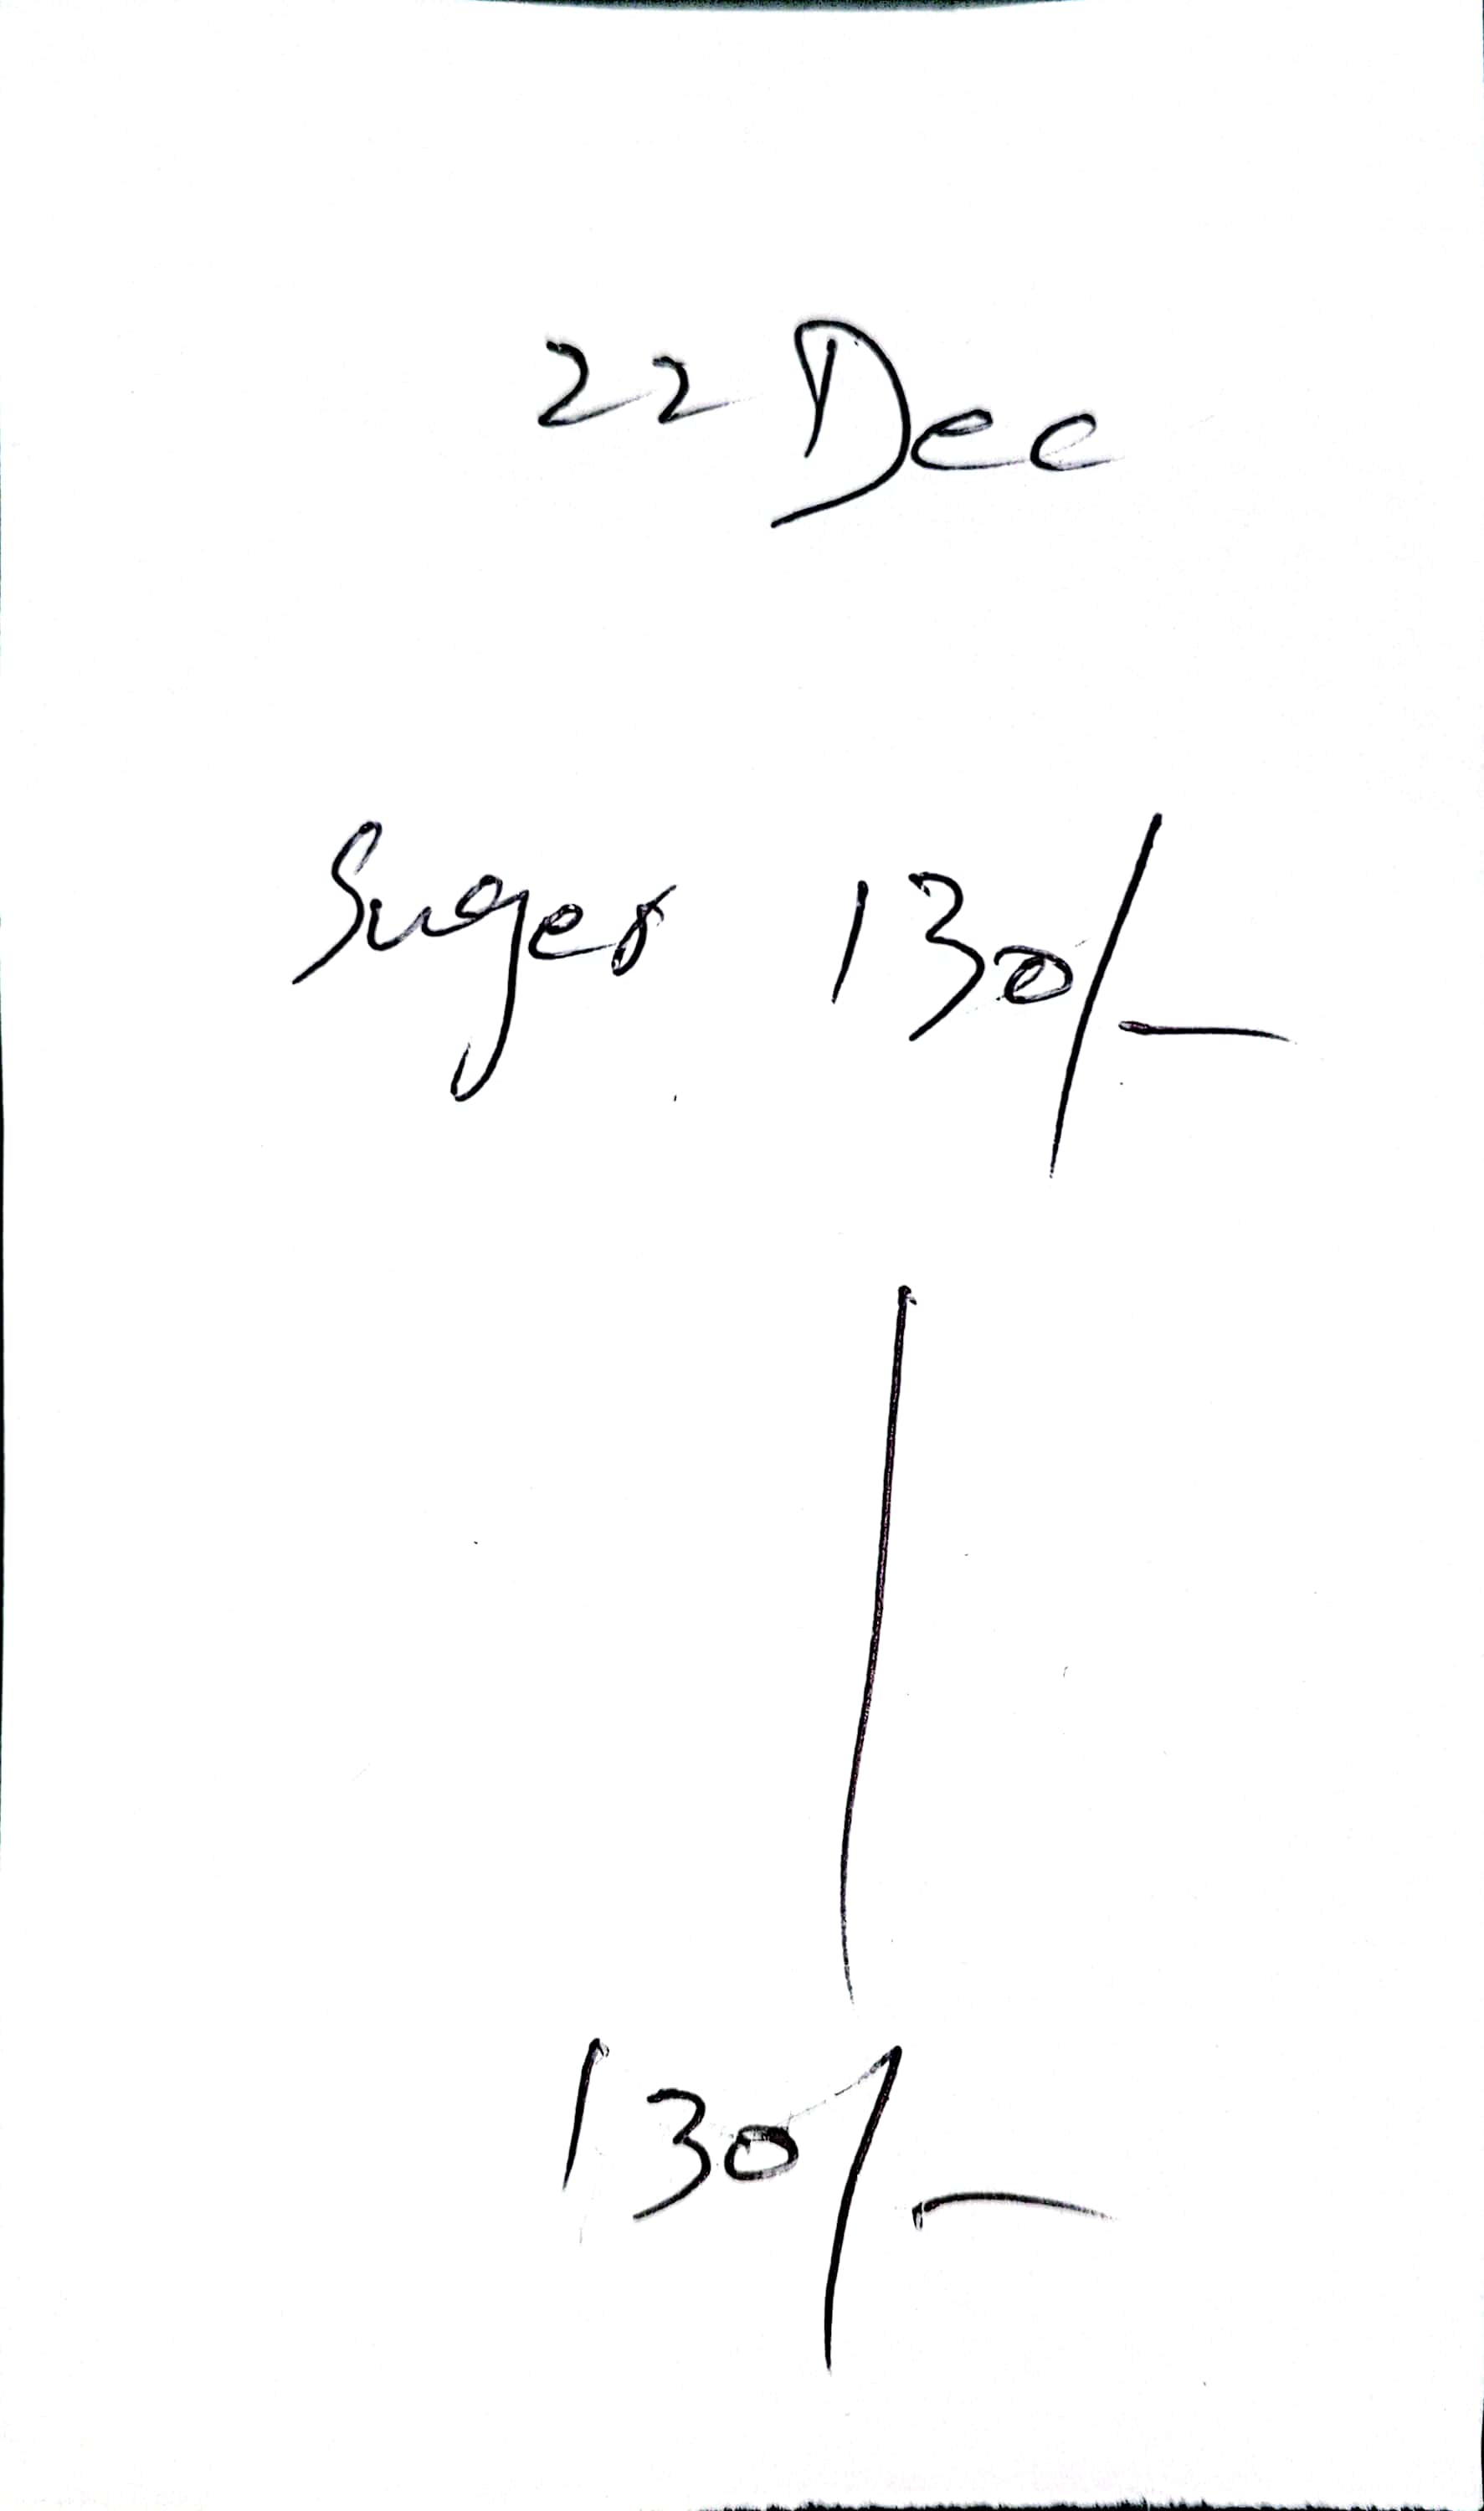 22 Dec
Suger 130/-
130/-